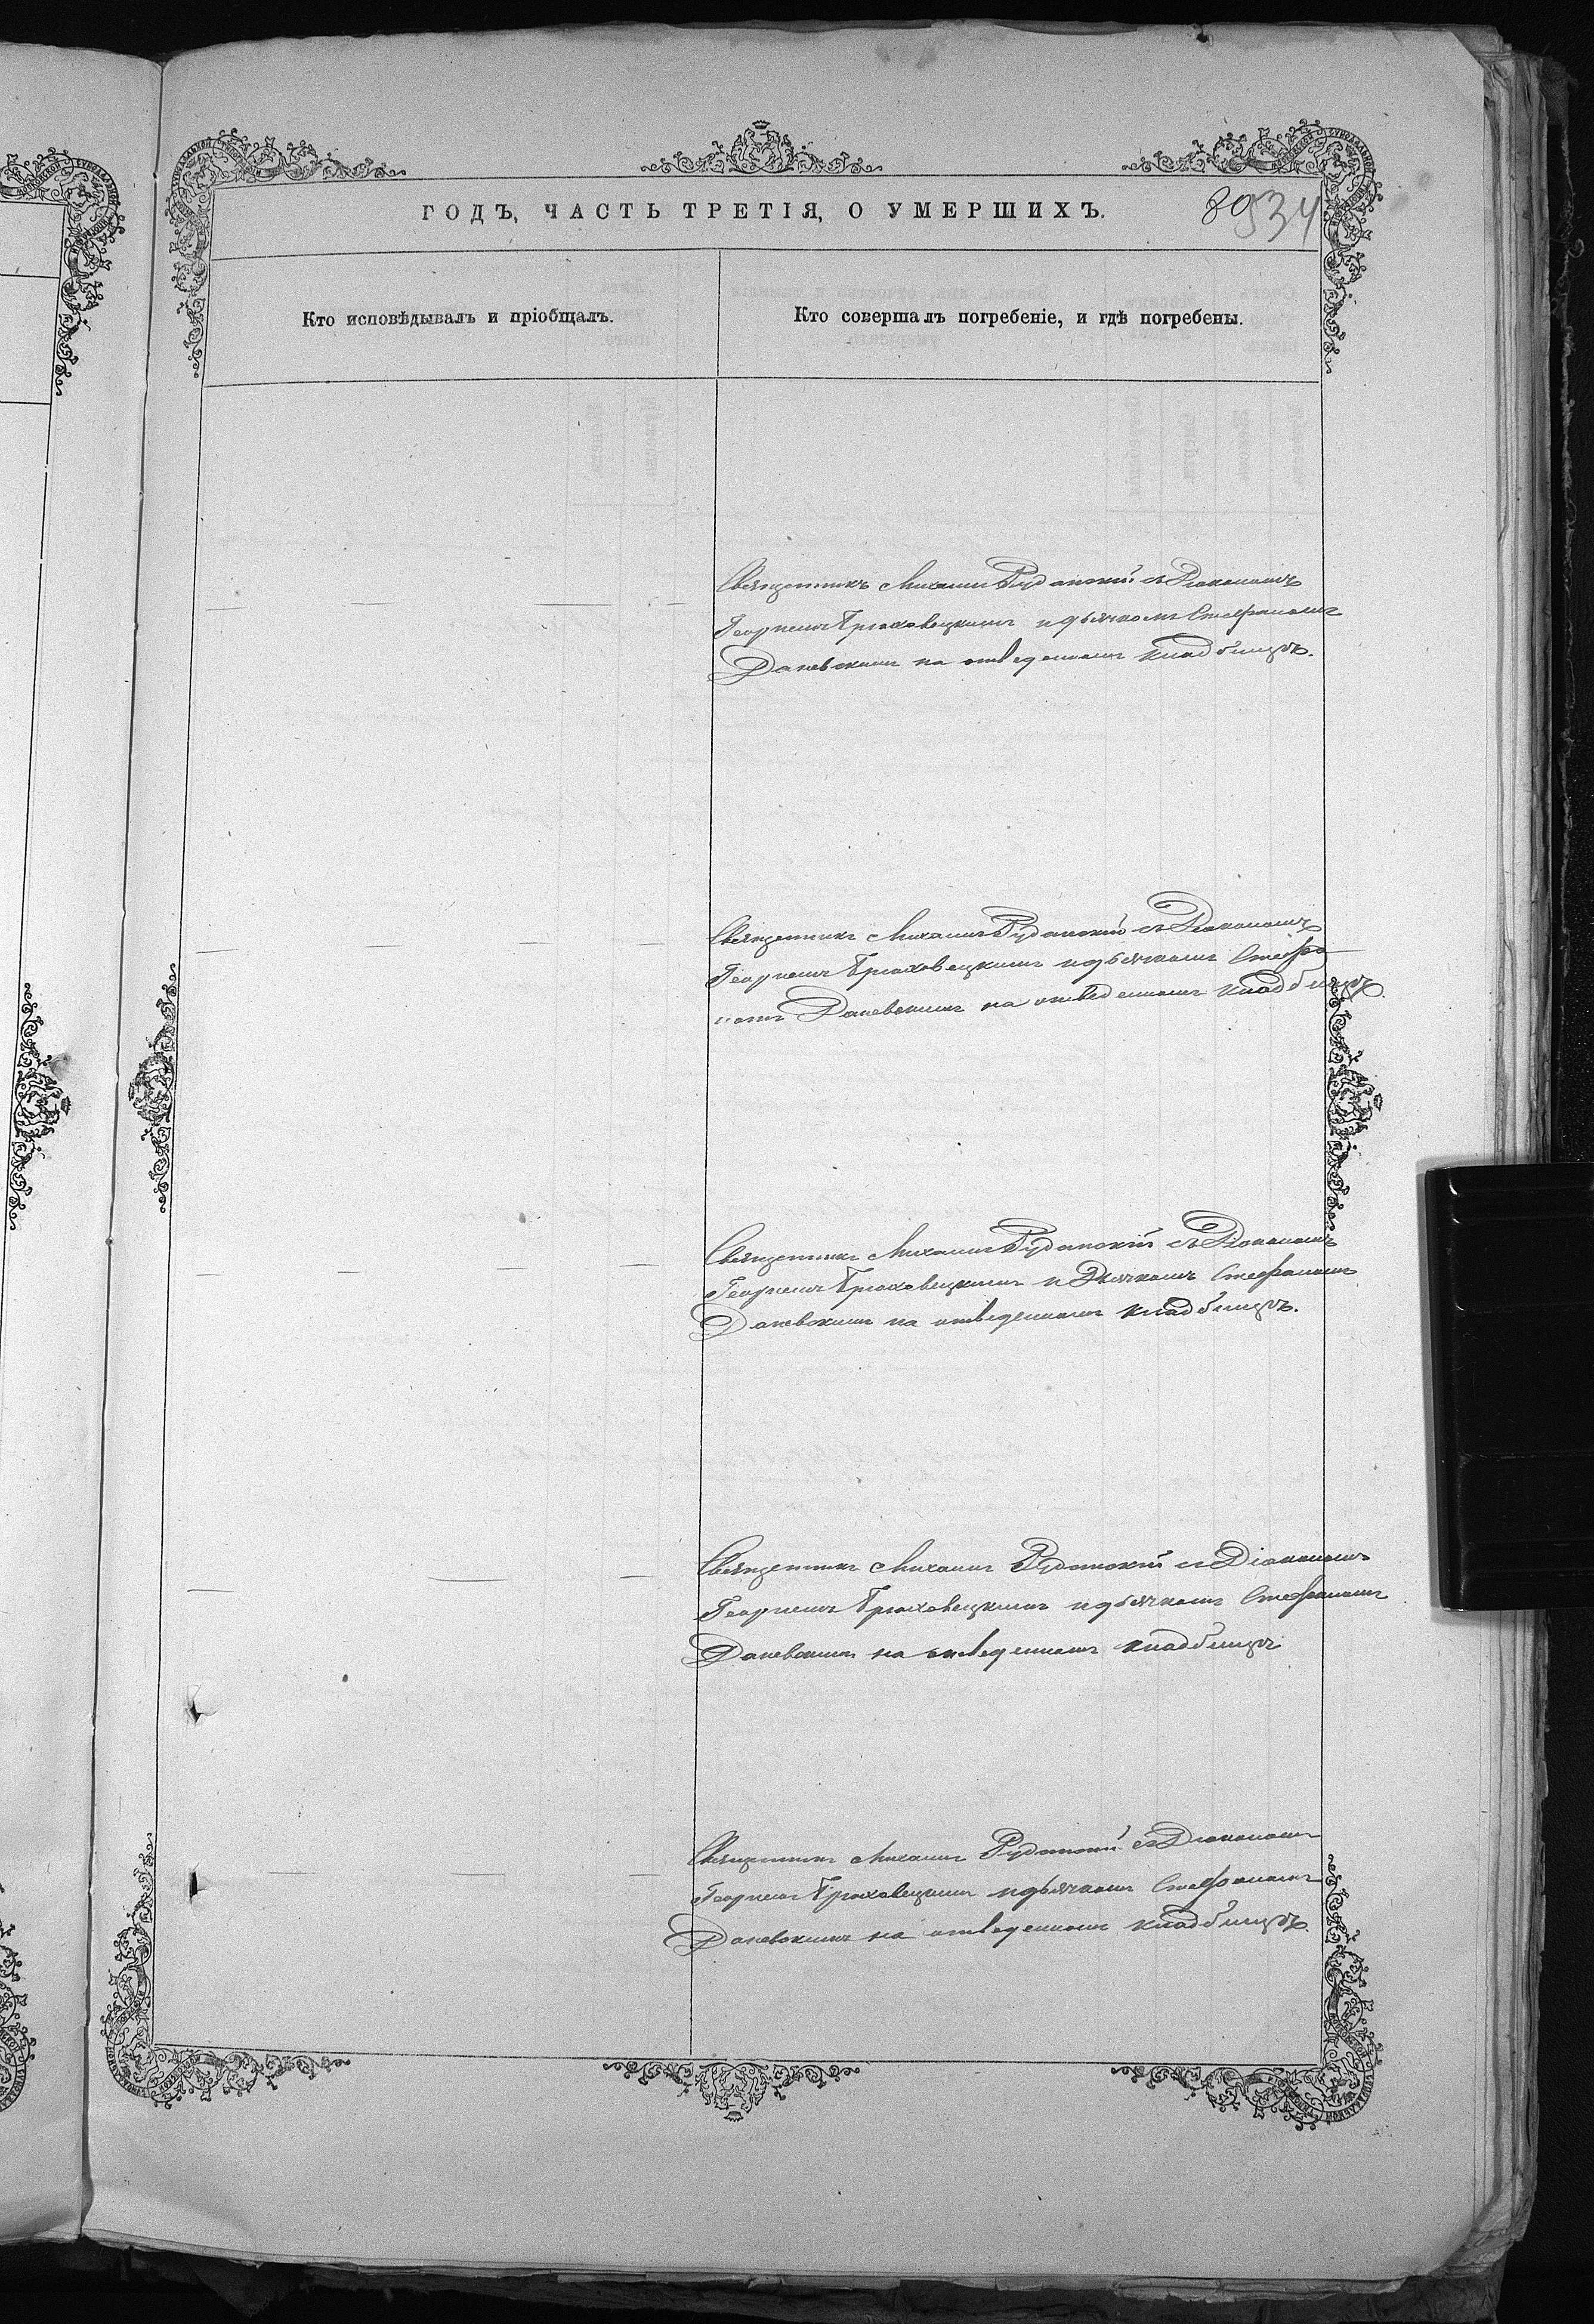 ГОДЪ, ЧАСТЬ ТРЕТІЯ, О УМЕРШИХЪ.
934
Кто исповѣдывалъ и пріобщалъ.
Кто совершалъ погребеніе, и гдѣ погребены.
Священникъ Михаилъ Руданскій съ Діакономъ
Георгіемъ Брюховецкимъ и дьячкомъ Стефаномъ
Даневскимъ на отведенномъ кладбищѣ.
Священникъ Михаилъ Руданскій съ Діакономъ
Георгіемъ Брюховецкимъ и дьячкомъ Стефа-
номъ Даневскимъ на отведенномъ кладбищѣ.
Священникъ Михаилъ Руданскій съ Діакономъ
Георгіемъ Брюховецкимъ и Дьячкомъ Стефаномъ
Даневскимъ на отведенномъ кладбищѣ.
Священникъ Михаилъ Руданскій съ Діакономъ
Георгіемъ Брюховецкимъ и дьячкомъ Стефаномъ
Даневскимъ на отведенномъ кладбищѣ
Священникъ Михаилъ Руданскій съ Діакономъ
Георгіемъ Брюховецкимъ и дьячкомъ Стефаномъ
Даневскимъ на отведенномъ кладбищѣ.